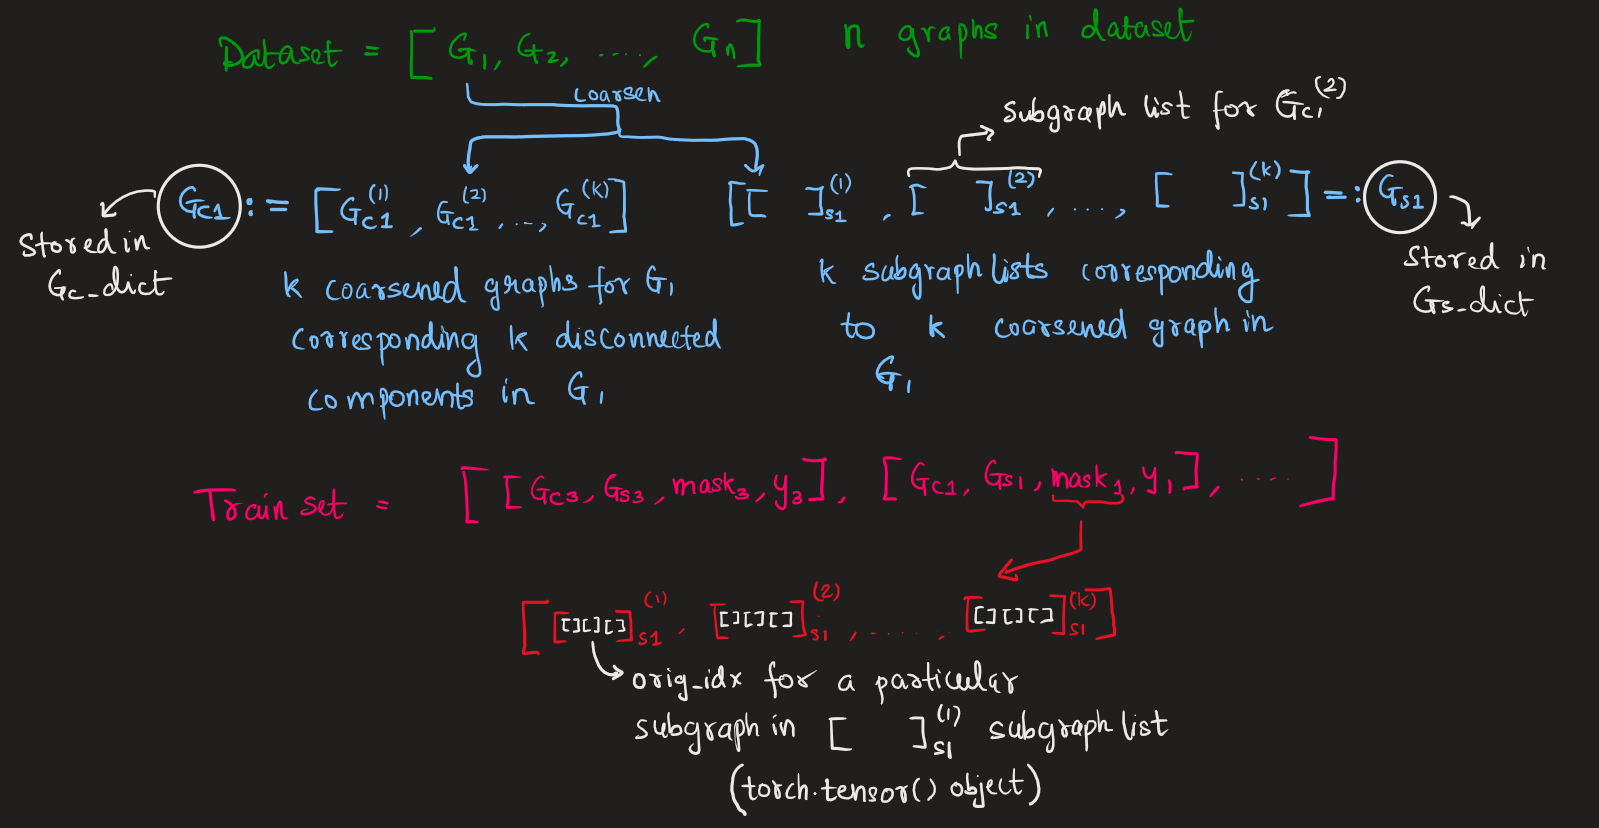 Dataset = [G₁, G₂, ...., Gₙ] n graphs in dataset
coarsen
subgraph list for G_c1^(2)
G_c1 := [G_c1^(1), G_c1^(2), ..., G_c1^(k)] [[ ]_s1^(1), [ ]_s1^(2), ..., [ ]_s1^(k)] =: G_s1
Stored in
Gc_dict
Stored in
Gs_dict
k coarsened graphs for G₁
corresponding k disconnected
components in G₁
k subgraph lists corresponding
to k coarsened graph in
G₁
Train set = [[G_c3, G_s3, mask₃, y₃], [G_c1, G_s1, mask₁, y₁], ....]
[[[][][]]_s1^(1), [[][][]]_s1^(2), ......, [[][][]]_s1^(k)]
orig_idx for a particular
subgraph in [ ]_s1^(1) subgraph list
(torch.tensor() object)